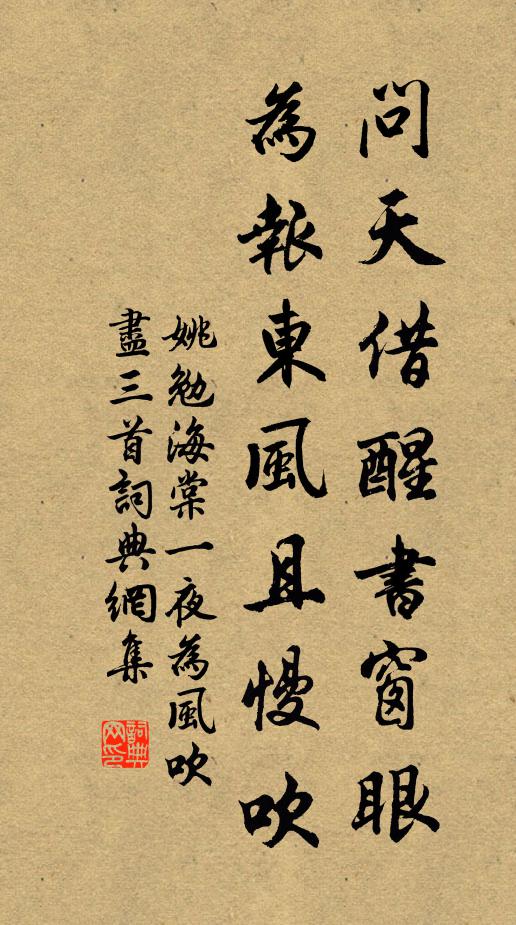 問天借醒書窗眼
為報東風且慢吹
姚勉海棠一夜為風吹
盡三首詞典網集
詞典
网印